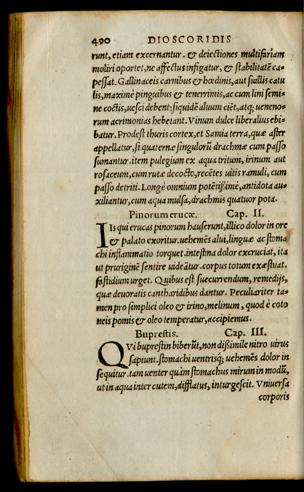 490 DIOSCORIDIS
runt, etiam excernantur. & deiectiones multifariam
moliri oportet, ne affectus infigatur, & stabilitatē ca-
pessat. Gallinaceis carnibus & hœdinis, aut suillis catu
lis, maximè pinguibus & tenerrimis, ac cum lini semi-
ne coctis, uesci debent: siquidē aluum ciēt, atq; ueneno-
rum acrimonias hebetant. Vinum dulce liberalius ebi-
batur. Prodest thuris cortex, et Samia terra, quæ aster
appellatur, si quaternæ singulorū drachmæ cum passo
sumantur. item pulegium ex aqua tritum, irinum aut
rosaceum, cum rutæ decocto, recētes uitis ramuli, cum
passo detriti. Longè omnium potētißimè, antidota au-
xiliantur, cum aqua mulsa, drachmis quatuor pota.
Pinorum erucæ. Cap. II.
IIs qui erucas pinorum hauserunt, illico dolor in ore
& palato exoritur. uehemēs alui, linguæ ac stoma
chi inflammatio torquet. intestina dolor excruciat, ita
ut pruriginē sentire uideātur. corpus totum exæstuat.
fastidium urget. Quibus est succurrendum, remedijs,
quæ deuoratis cantharidibus dantur. Peculiariter ta-
men pro simplici oleo & irino, melinum, quod è coto
neis pomis & oleo temperatur, accipiemus.
Buprestis. Cap. III.
QVi buprestin biberūt, non dißimile nitro uirus
sapiunt. stomachi uentrisq; uehemēs dolor in
sequitur. tam uenter quàm stomachus mirum in modū,
ut in aqua inter cutem, difflatus, inturgescit. Vniuersa
corporis